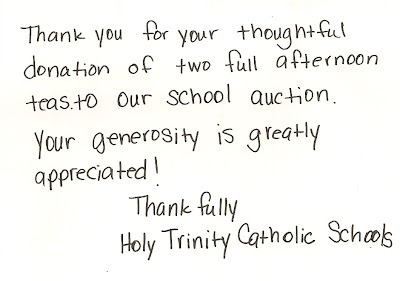 Thank you for your thoughtful
donation of two full afternoon
teas.to our school auction.
Your generosity is greatly
appreciated!
Thankfully
Holy Trinity Catholic Schools